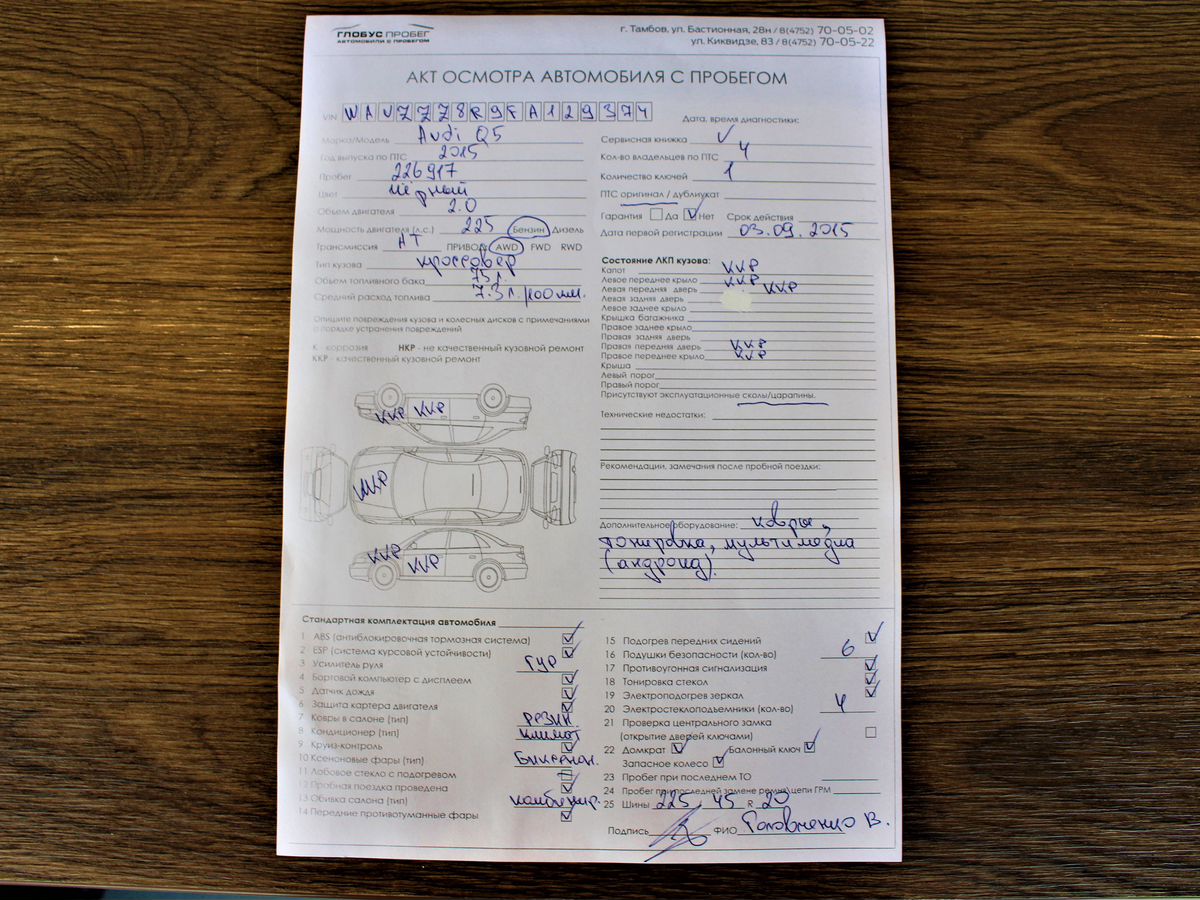 ГЛОБУС ПРОБЕГ
АВТОМОБИЛИ С ПРОБЕГОМ
г. Тамбов, ул. Бастионная, 28н / 8(4752) 70-05-02
ул. Киквидзе, 83 / 8(4752) 70-05-22
АКТ ОСМОТРА АВТОМОБИЛЯ С ПРОБЕГОМ
VIN WAUZZZ8R9FA129374
Марка/Модель Audi Q5
Год выпуска по ПТС 2015
Пробег 226917
Цвет чёрный
Объем двигателя 2.0
Мощность двигателя (л.с.) 225 Бензин Дизель
Трансмиссия АТ ПРИВОД: AWD FWD RWD
Тип кузова кроссовер
Объем топливного бака 75 л.
Средний расход топлива 7.3 л./100 км.
Опишите повреждения кузова и колесных дисков с примечаниями
о порядке устранения повреждений
К - коррозия НКР - не качественный кузовной ремонт
ККР - качественный кузовной ремонт
ККР ККР
ККР
ККР ККР
Дата, время диагностики:
Сервисная книжка ✓
Кол-во владельцев по ПТС 4
Количество ключей 1
ПТС оригинал / дубликат
Гарантия Да Нет Срок действия
Дата первой регистрации 03.09.2015
Состояние ЛКП кузова:
Капот ККР
Левое переднее крыло ККР
Левая передняя дверь ККР
Левая задняя дверь
Левое заднее крыло
Крышка багажника
Правое заднее крыло
Правая задняя дверь
Правая передняя дверь ККР
Правое переднее крыло ККР
Крыша
Левый порог
Правый порог
Присутствуют эксплуатационные сколы/царапины.
Технические недостатки:
Рекомендации, замечания после пробной поездки:
Дополнительное оборудование: ковры,
тонировка, мультимедиа
(андроид).
Стандартная комплектация автомобиля
1 ABS (антиблокировочная тормозная система)
2 ESP (система курсовой устойчивости)
3 Усилитель руля Гур
4 Бортовой компьютер с дисплеем
5 Датчик дождя
6 Защита картера двигателя
7 Ковры в салоне (тип) резин
8 Кондиционер (тип) климат
9 Круиз-контроль
10 Ксеноновые фары (тип)
11 Лобовое стекло с подогревом
12 Пробная поездка проведена
13 Обивка салона (тип) комбинир.
14 Передние противотуманные фары
15 Подогрев передних сидений
16 Подушки безопасности (кол-во) 6
17 Противоугонная сигнализация
18 Тонировка стекол
19 Электроподогрев зеркал
20 Электростеклоподъемники (кол-во) 4
21 Проверка центрального замка
(открытие дверей ключами)
22 Домкрат Балонный ключ
Запасное колесо
23 Пробег при последнем ТО
24 Пробег при последней замене ремня/цепи ГРМ
25 Шины 225 45 R 20
Подпись ФИО Головченко В.